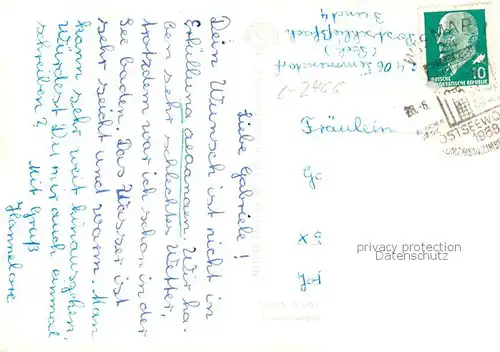 Liebe Gabriele!
Dein Wunsch ist nicht in
Erfüllung gegangen. Wir ha-
ben sehr schlechtes Wetter,
trotzdem war ich schon in der
See baden. Das Wasser ist
sehr seicht und warm. Man
kann sehr weit hinausgehen.
Würdest Du mir auch einmal
schreiben?
Mit Gruß
Hannelore
2406
Postschließfach
3 und 4
c-2466
Fräulein
WISMAR
OSTSEEWO
1969
DEUTSCHE
DEMOKRATISCHE REPUBLIK
10
privacy protection
Datenschutz